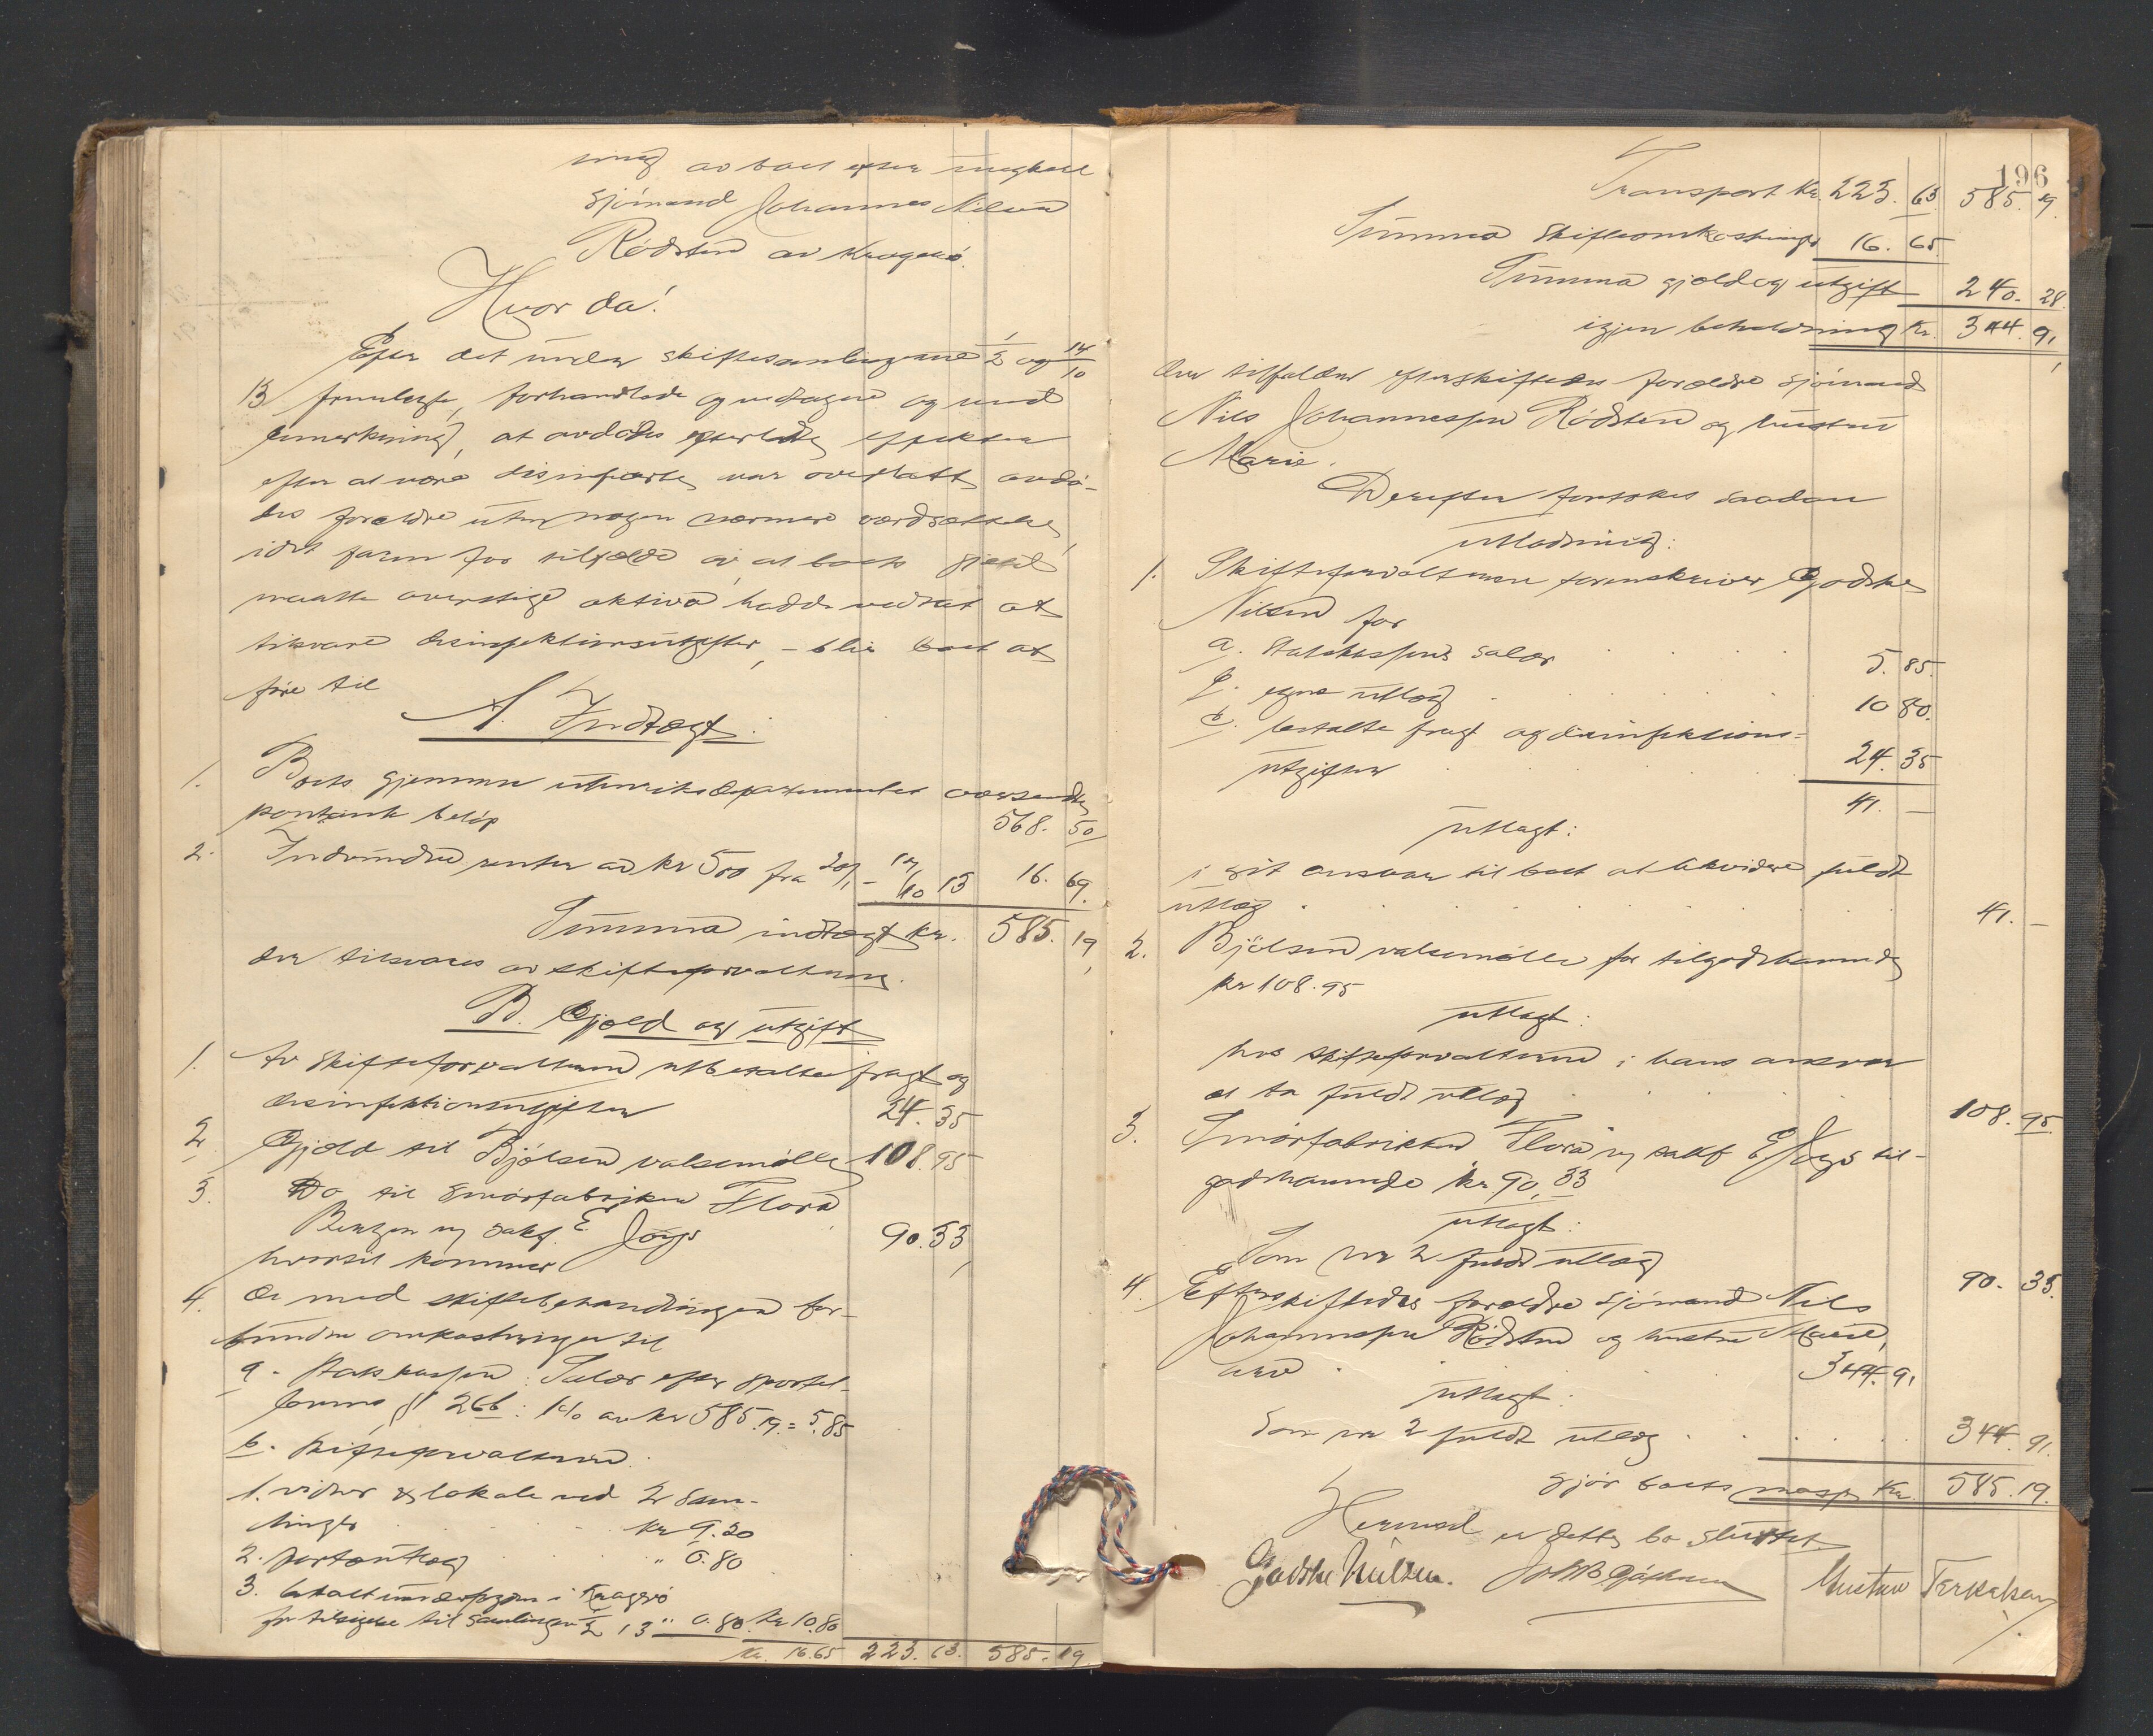 ning av boet efter
sjömand Johannes Nilsen
Rödsten av Kragerö.
Hvor da!
Efter det under skiftesamlingerne 1/2 og 14/10
13 fremlagte, forhandlede og vedtagne og med
bemerkning, at avdödes efterladte effekter
efter at være desinfisert, var overlatt avdö-
des forældre uten nogen nærmere værdsættelse,
idet faren for tilfælde av at boets gjæld
maatte overstige aktiva hadde vedtat at
tilsvare desinfektionsutgifter, - blir boet at
före til
A. Indtægt.
1. Boets gjennem utenriksdepartementet oversendte
kontante belöp 568. 50
2. Indvundne renter av kr 500 fra 20/1 - 14/10 13 16. 69.
Summa indtægt kr. 585. 19,
der tilsvares av skifteforvalteren.
B. Gjæld og utgift
1. Av skifteforvalteren utbetalte fragt og
desinfektionsutgifter 24. 35
2. Gjæld til Bjölsen valsemölle 108. 95
3. Do til Smörfabriken Flora,
Bentzen ny sakf. E Jörgs 90. 33,
hvortil kommer
4. De med skiftebehandlingen for-
bundne omkostninger til
a. Statskassen: Salær efter sportel-
lovens § 26b: 1% av kr 585.19. = 5.85
b. skifteforvalteren
1. vidner & lokale ved 2 sam-
linger kr 9.20
2. portoutlæg " 0.80
3. betalt i Kragerö
for tilsigelse til samlingen 1/2 13 " 0.80. kr 10.80
kr. 16.65 223. 63. 585. 19.
196
Transport kr. 223. 63. 585. 19.
Summa skifteomkostninger 16. 65.
Summa gjæld og utgift 240. 28.
igjen beholdning kr. 344. 91,
der tilfalder efterskiftedes forældre sjömand
Nils Johannessen Rödsten og hustru
Marie.
Derefter foretokes saadan
utlodning:
1. Skifteforvalteren sorenskriver Godske
Nilsen for
a. statskassens salær 5. 85.
b. egne utlæg 10 80.
c. betalte fragt og desinfektions=
utgifter 24. 35
41. —
utlagt:
i sit ansvar til boet at likvidere fuldt
utlæg 41. —
2. Bjölsen valsemölle for tilgodehavende
kr 108. 95
utlagt:
hos skifteforvalteren i hans ansvar
at ta fuldt utlæg 108. 95.
3. Smörfabrikken "Flora" ny sakf E Jörgs til-
godehavende kr 90, 33
utlagt:
Som nr 2 fuldt utlæg 90. 33.
4. Efterskiftedes forældre sjömand Nils
Johannessen Rödsten og hustru Marie,
arv 344. 91
utlagt:
Som nr 2 fuldt utlæg 344. 91.
Gjör boets masse kr. 585. 19.
Hermed er dette bo sluttet.
Godske Nielsen. Gustav Terkelsen